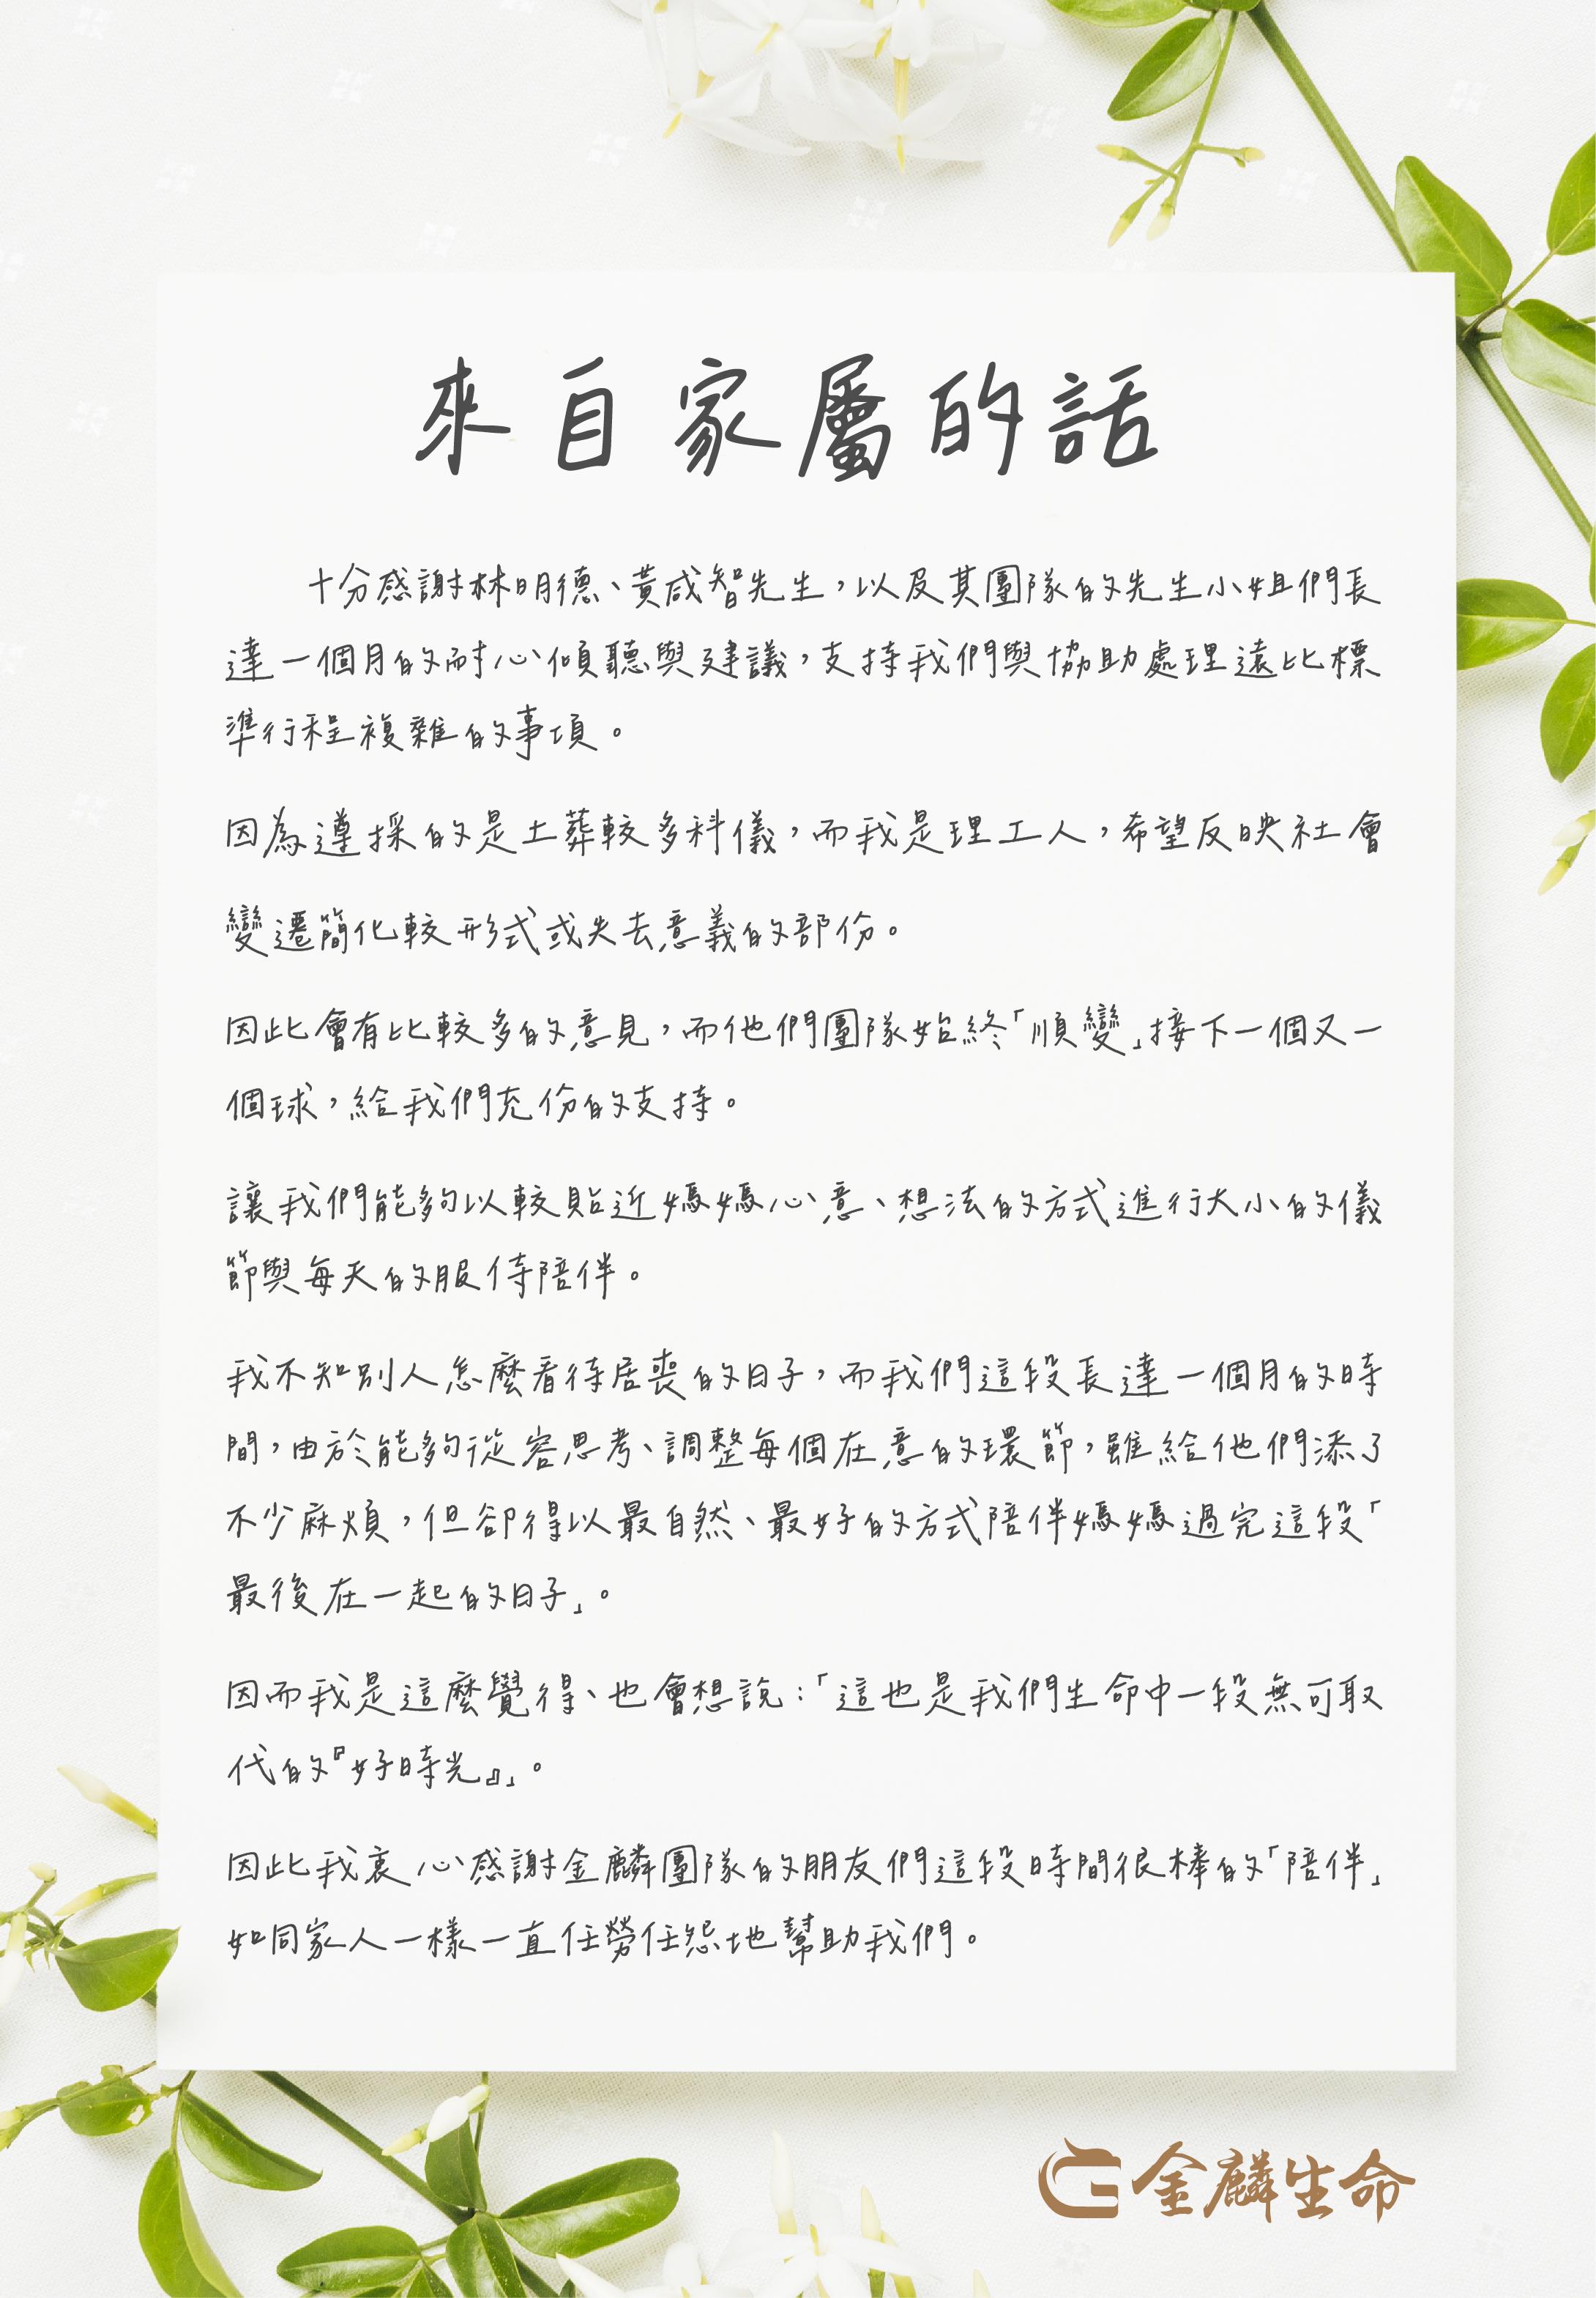 來自家屬的話
十分感謝林明德、黃咸智先生，以及其團隊的先生小姐們長
達一個月的耐心傾聽與建議，支持我們與協助處理遠比標
準行程複雜的事項。
因為遵採的是土葬較多科儀，而我是理工人，希望反映社會
變遷簡化較形式或失去意義的部份。
因此會有比較多的意見，而他們團隊始終「順變」接下一個又一
個球，給我們充份的支持。
讓我們能夠以較貼近媽媽心意、想法的方式進行大小的儀
節與每天的服侍陪伴。
我不知別人怎麼看待居喪的日子，而我們這段長達一個月的時
間，由於能夠從容思考、調整每個在意的環節，雖給他們添了
不少麻煩，但卻得以最自然、最好的方式陪伴媽媽過完這段「
最後在一起的日子」。
因而我是這麼覺得、也會想說：「這也是我們生命中一段無可取
代的『好時光』」。
因此我衷心感謝金麟團隊的朋友們這段時間很棒的「陪伴」
如同家人一樣一直任勞任怨地幫助我們。
金麟生命